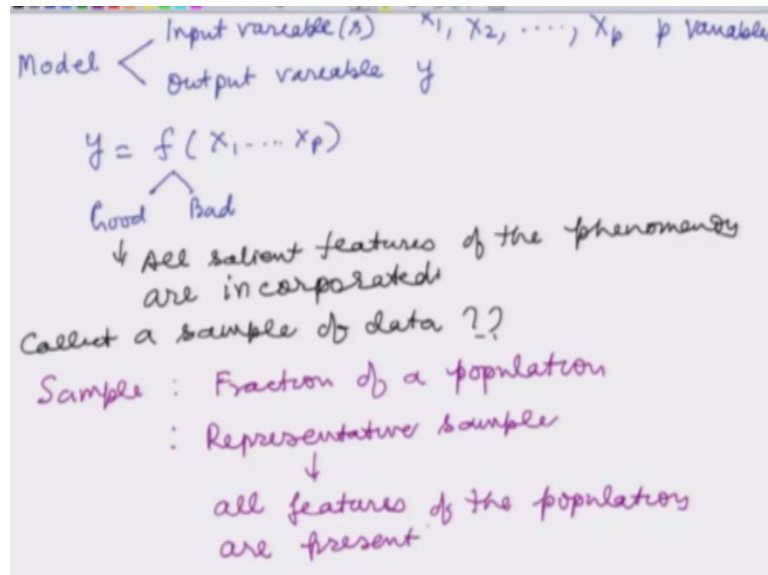 Input variable(s) x1, x2, ...., xp p variable
Model <
Output variable y
y = f(x1....xp)
Good Bad
↓ All salient features of the phenomenon
are incorporated
Collect a sample of data ??
Sample : Fraction of a population
: Representative sample
↓
all features of the population
are present